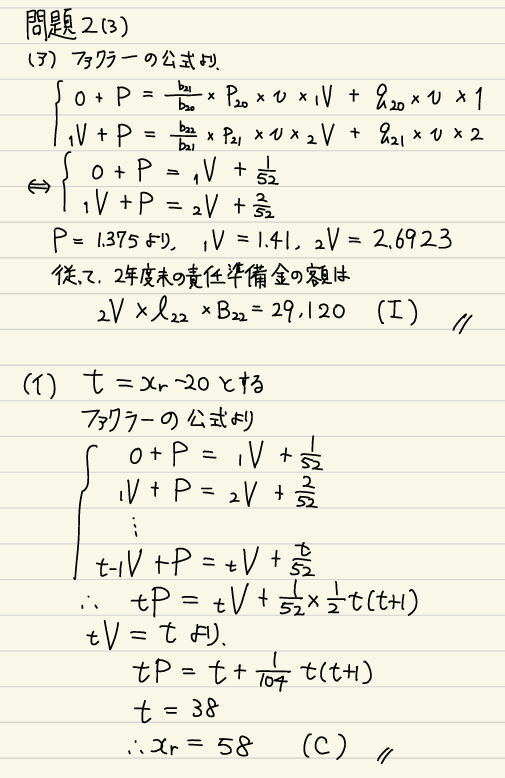 問題2(3)
(ア) ファクラーの公式より、
0 + P = b₂₁/b₂₀ × P₂₀ × v × ₁V + q₂₀ × v × 1
₁V + P = b₂₂/b₂₁ × P₂₁ × v × ₂V + q₂₁ × v × 2
⇔ 0 + P = ₁V + 1/52
₁V + P = ₂V + 2/52
P = 1.375 より、 ₁V = 1.41, ₂V = 2.6923
従って、2年度末の責任準備金の額は
₂V × l₂₂ × B₂₂ = 29,120 (I) //
(イ) t = xr - 20 とする
ファクラーの公式より
0 + P = ₁V + 1/52
₁V + P = ₂V + 2/52
⋮
t-1V + P = tV + t/52
∴ tP = tV + 1/52 × 1/2 t(t+1)
tV = t より、
tP = t + 1/104 t(t+1)
t = 38
∴ xr = 58 (C) //